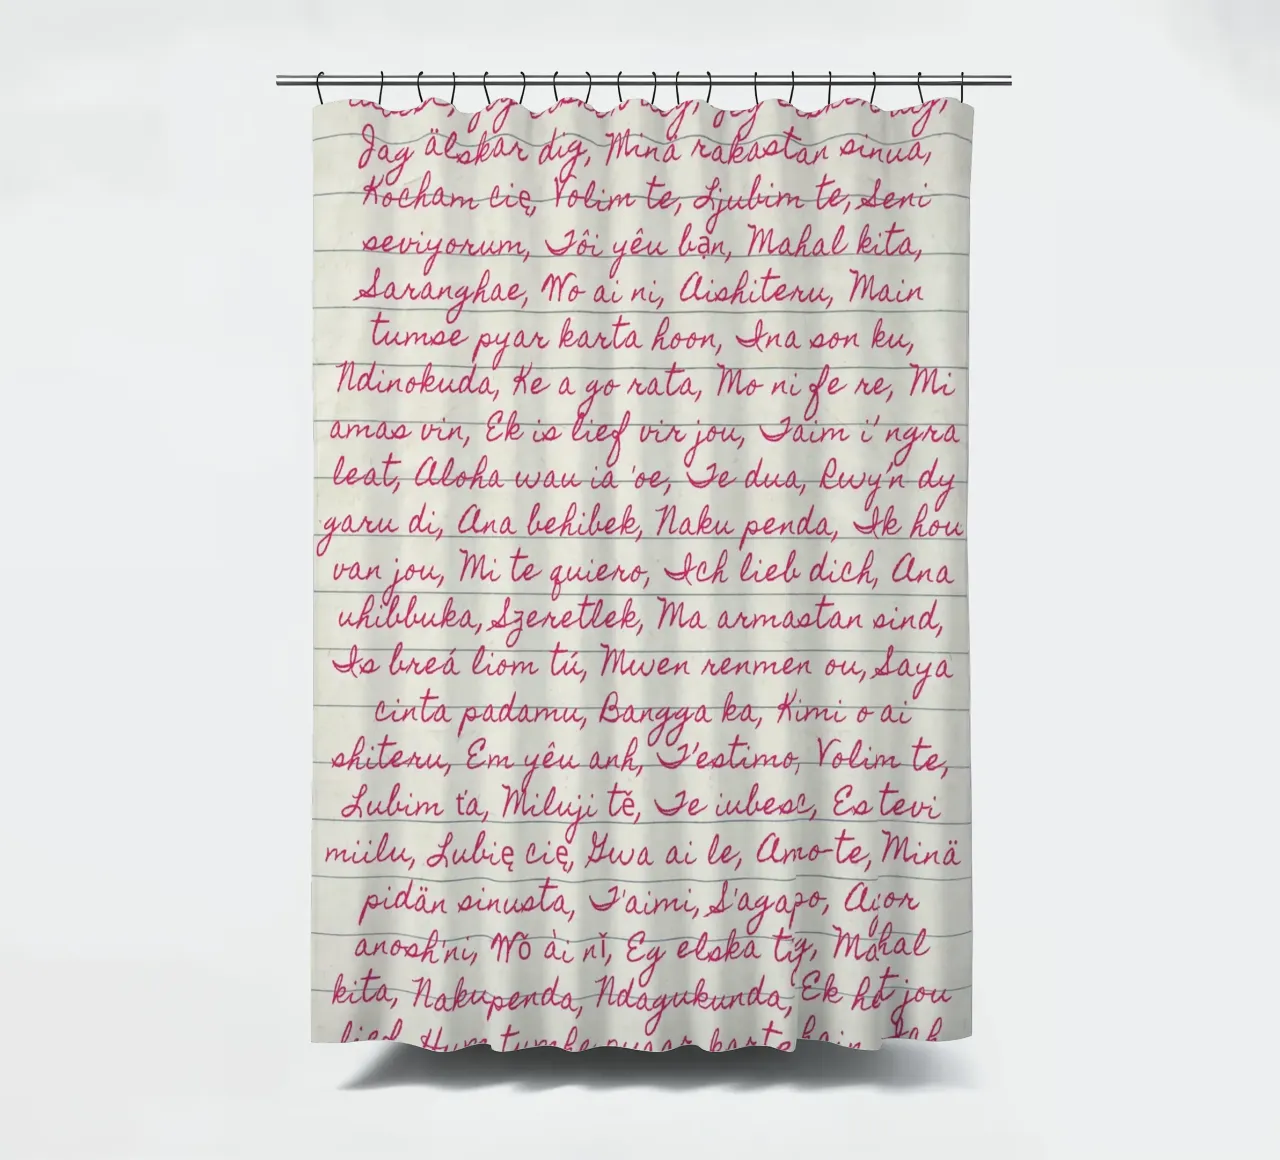 Jag älskar dig, Minä rakastan sinua,
Kocham cię, Volim te, Ljubim te, Seni
seviyorum, Tôi yêu bạn, Mahal kita,
Saranghae, Wo ai ni, Aishiteru, Main
tumse pyar karta hoon, Ina son ku,
Ndinokuda, Ke a go rata, Mo ni fe re, Mi
amas vin, Ek is lief vir jou, Taim i' ngra
leat, Aloha wau ia 'oe, Te dua, Rwy'n dy
garu di, Ana behibek, Naku penda, Ik hou
van jou, Mi te quiero, Ich lieb dich, Ana
uhibbuka, Szeretlek, Ma armastan sind,
Is breá liom tú, Mwen renmen ou, Saya
cinta padamu, Bangga ka, Kimi o ai
shiteru, Em yêu anh, T'estimo, Volim te,
Lubim ťa, Miluji tě, Te iubesc, Es tevi
miilu, Lubię cię, Gwa ai le, Amo-te, Minä
pidän sinusta, T'aimi, S'agapo,
anosh'ni, Wǒ ài nǐ, Eg elska tig, Mahal
kita, Nakupenda, Ndagukunda, Ek het jou
lief, Hum tumhe pyaar karte hain,